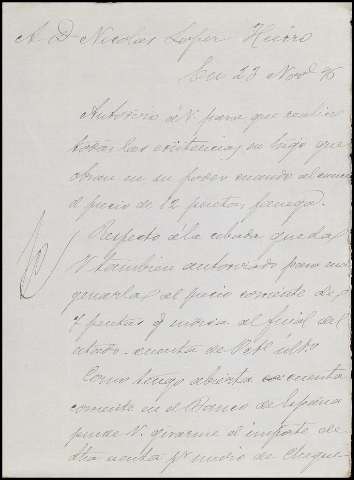 A. D. Nicolas Lopez Huizo
En 23 Novb 95
Autorizo á V. para que realice
todas las existencias en trigo que
obran en su poder cuando alcance
el precio de 12 pesetas fanega.
Respecto á la cebada queda
V. tambien autorizado para ena
genarla al precio corriente de
7 pesetas q marca al final del
estado cuenta de
Como tengo abierta cuenta
corriente en el Banco de España
puede V. girarme el importe de
dha venta pr medio de cheque